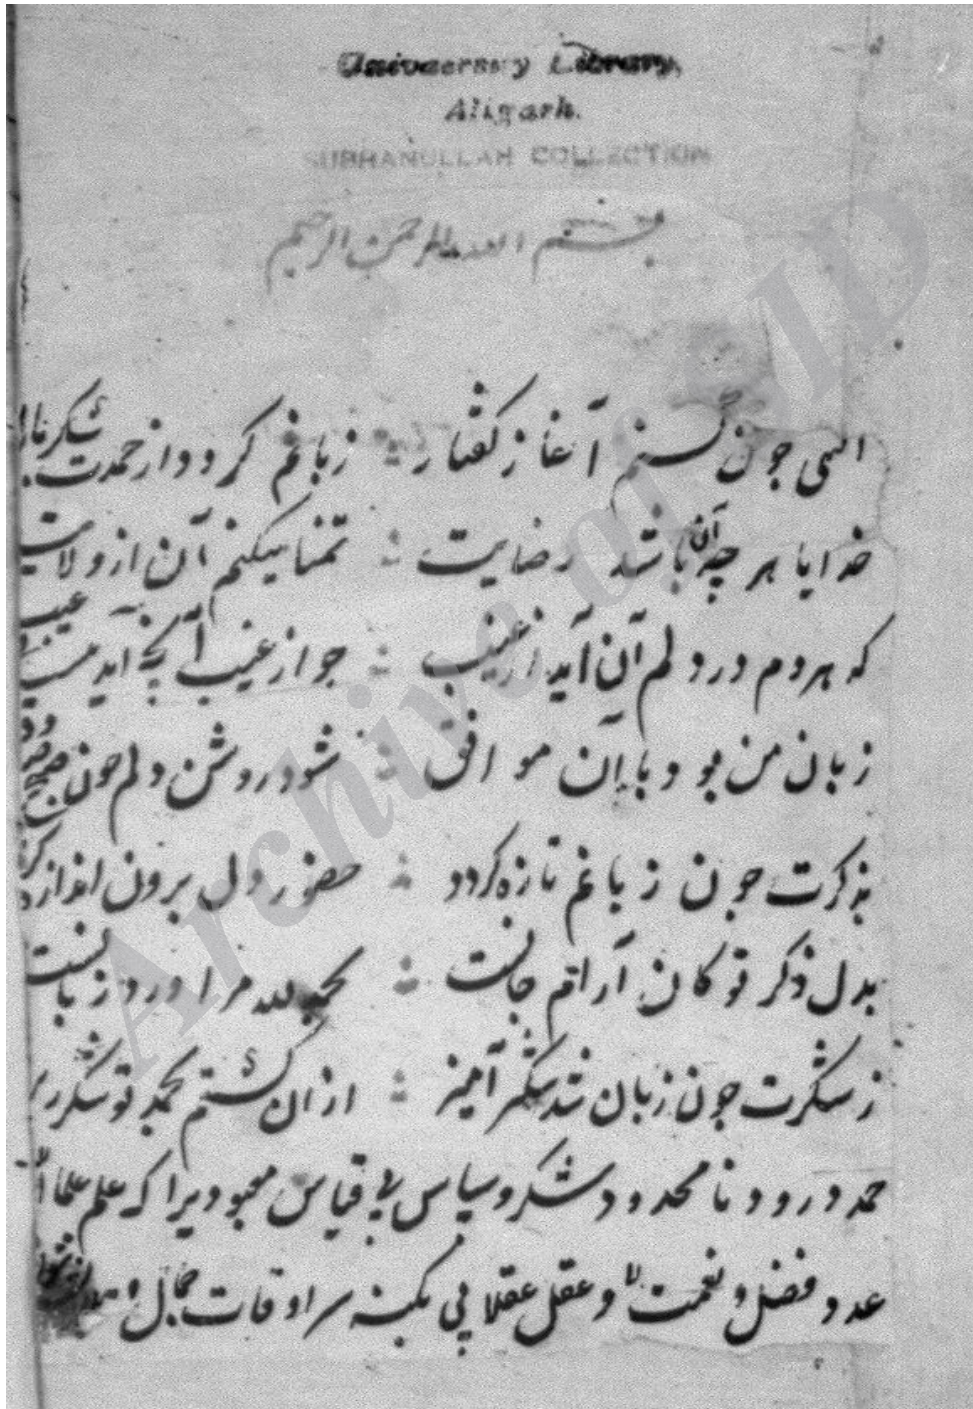 University Library,
Aligarh.
SUBHANULLAH COLLECTION
بسم الله الرحمن الرحيم
الهی چون کنم آغاز گفتار زبانم کردد از حمدت شکر
خدایا هر چه آن باشد رضایت تمنا میکنم آن از ولایت
که هر دم در دلم آن آید از غیب جو از غیب آنچه آید عیب
زبان من بود با آن موافق شود روشن دلم جون صبح
بذکرت جون زبانم تازه کردد حضور دل برون اندازه
بدل ذکر تو کان آرام جانست بحمدلله مرا ورد زبانست
ز شکرت جون زبان شد شکر آمیز ازان کشتم بحمد تو شکر
حمد و رود نا محدود و شکر و سپاس بی قیاس معبودیرا که علم علما
عدد فضل و نعمت و عقل عقلا بی بکنه سرادقات جمال و
Archive of MD